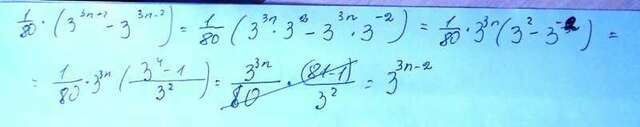 1/80 · (3^{3n+2} - 3^{3n-2}) = 1/80 (3^{3n} · 3^2 - 3^{3n} · 3^{-2}) = 1/80 · 3^{3n} (3^2 - 3^{-2}) =
= 1/80 · 3^{3n} ((3^4 - 1)/3^2) = 3^{3n}/80 · (81-1)/3^2 = 3^{3n-2}